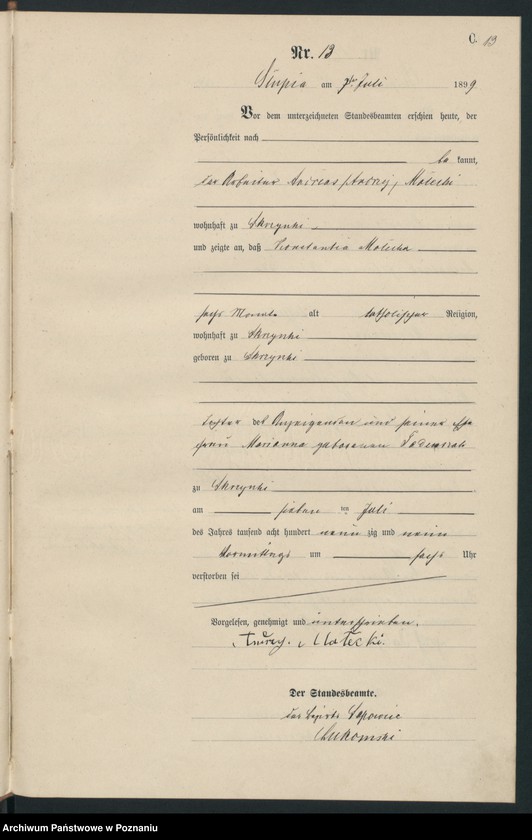 C. 13
Nr. 13
Słupia am 7ten Juli 1899
Vor dem unterzeichneten Standesbeamten erschien heute, der
Persönlichkeit nach
be kannt,
der Arbeiter Andreas (Andrzej) Małecki
wohnhaft zu Skrzynki
und zeigte an, daß Konstantia Małecka
sechs Monate alt katholischer Religion,
wohnhaft zu Skrzynki
geboren zu Skrzynki
Tochter des Anzeigenden und seiner Ehe
frau Marianna geborenen
zu Skrzynki
am sieben ten Juli
des Jahres tausend acht hundert neun zig und neun
Vormittags um sechs Uhr
verstorben sei
Vorgelesen, genehmigt und unterschrieben.
Andrzej Małecki.
Der Standesbeamte.
Łukomski
Archiwum Państwowe w Poznaniu